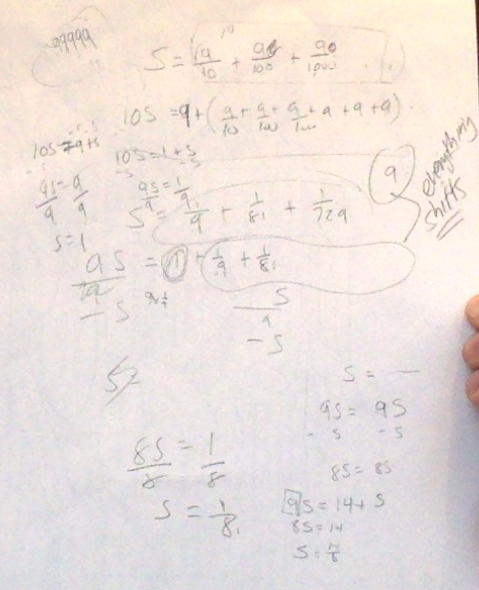 99999
S = 9/10 + 9/100 + 90/1000 . . .
10S = 9 + ( 9/10 + 9/100 + 9/1000 + 9 + 9 + 9 ) .
10S = 9 + S
10S = 1 + S
-S -S
9S/9 = 9/9
9S/9 = 1/9
S = 1
S = 1/9 + 1/81 + 1/729
9
everything
shifts
9S = 1 + 1/9 + 1/81
- S
S
9
- S
S = —
9S = 9S
- S - S
8S/8 = 1/8
8S = 8S
S = 1/8
9S = 14 + S
8S = 14